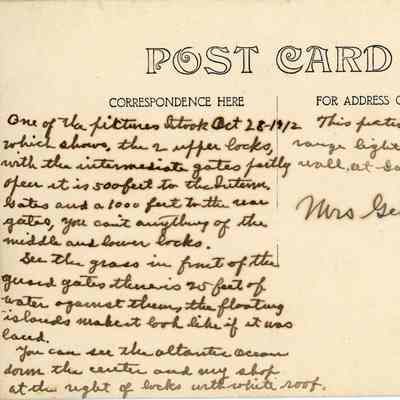 POST CARD
CORRESPONDENCE HERE
FOR ADDRESS O
One of the pictures I took Oct 28-1912
which shows, the 2 upper locks,
with the intermediate gates partly
open it is 500 feet to the Interm.
Gates and a 1000 feet to the rear
gates, you can't anything of the
middle and lower locks.
See the grass in front of the
guard gates there is 25 feet of
water against them, the floating
islands make it look like if it was
laced.
You can see the altantic Ocean
down the center and my shop
at the right of locks with white roof.
This pictu
range light
wall, at
Mrs Ge